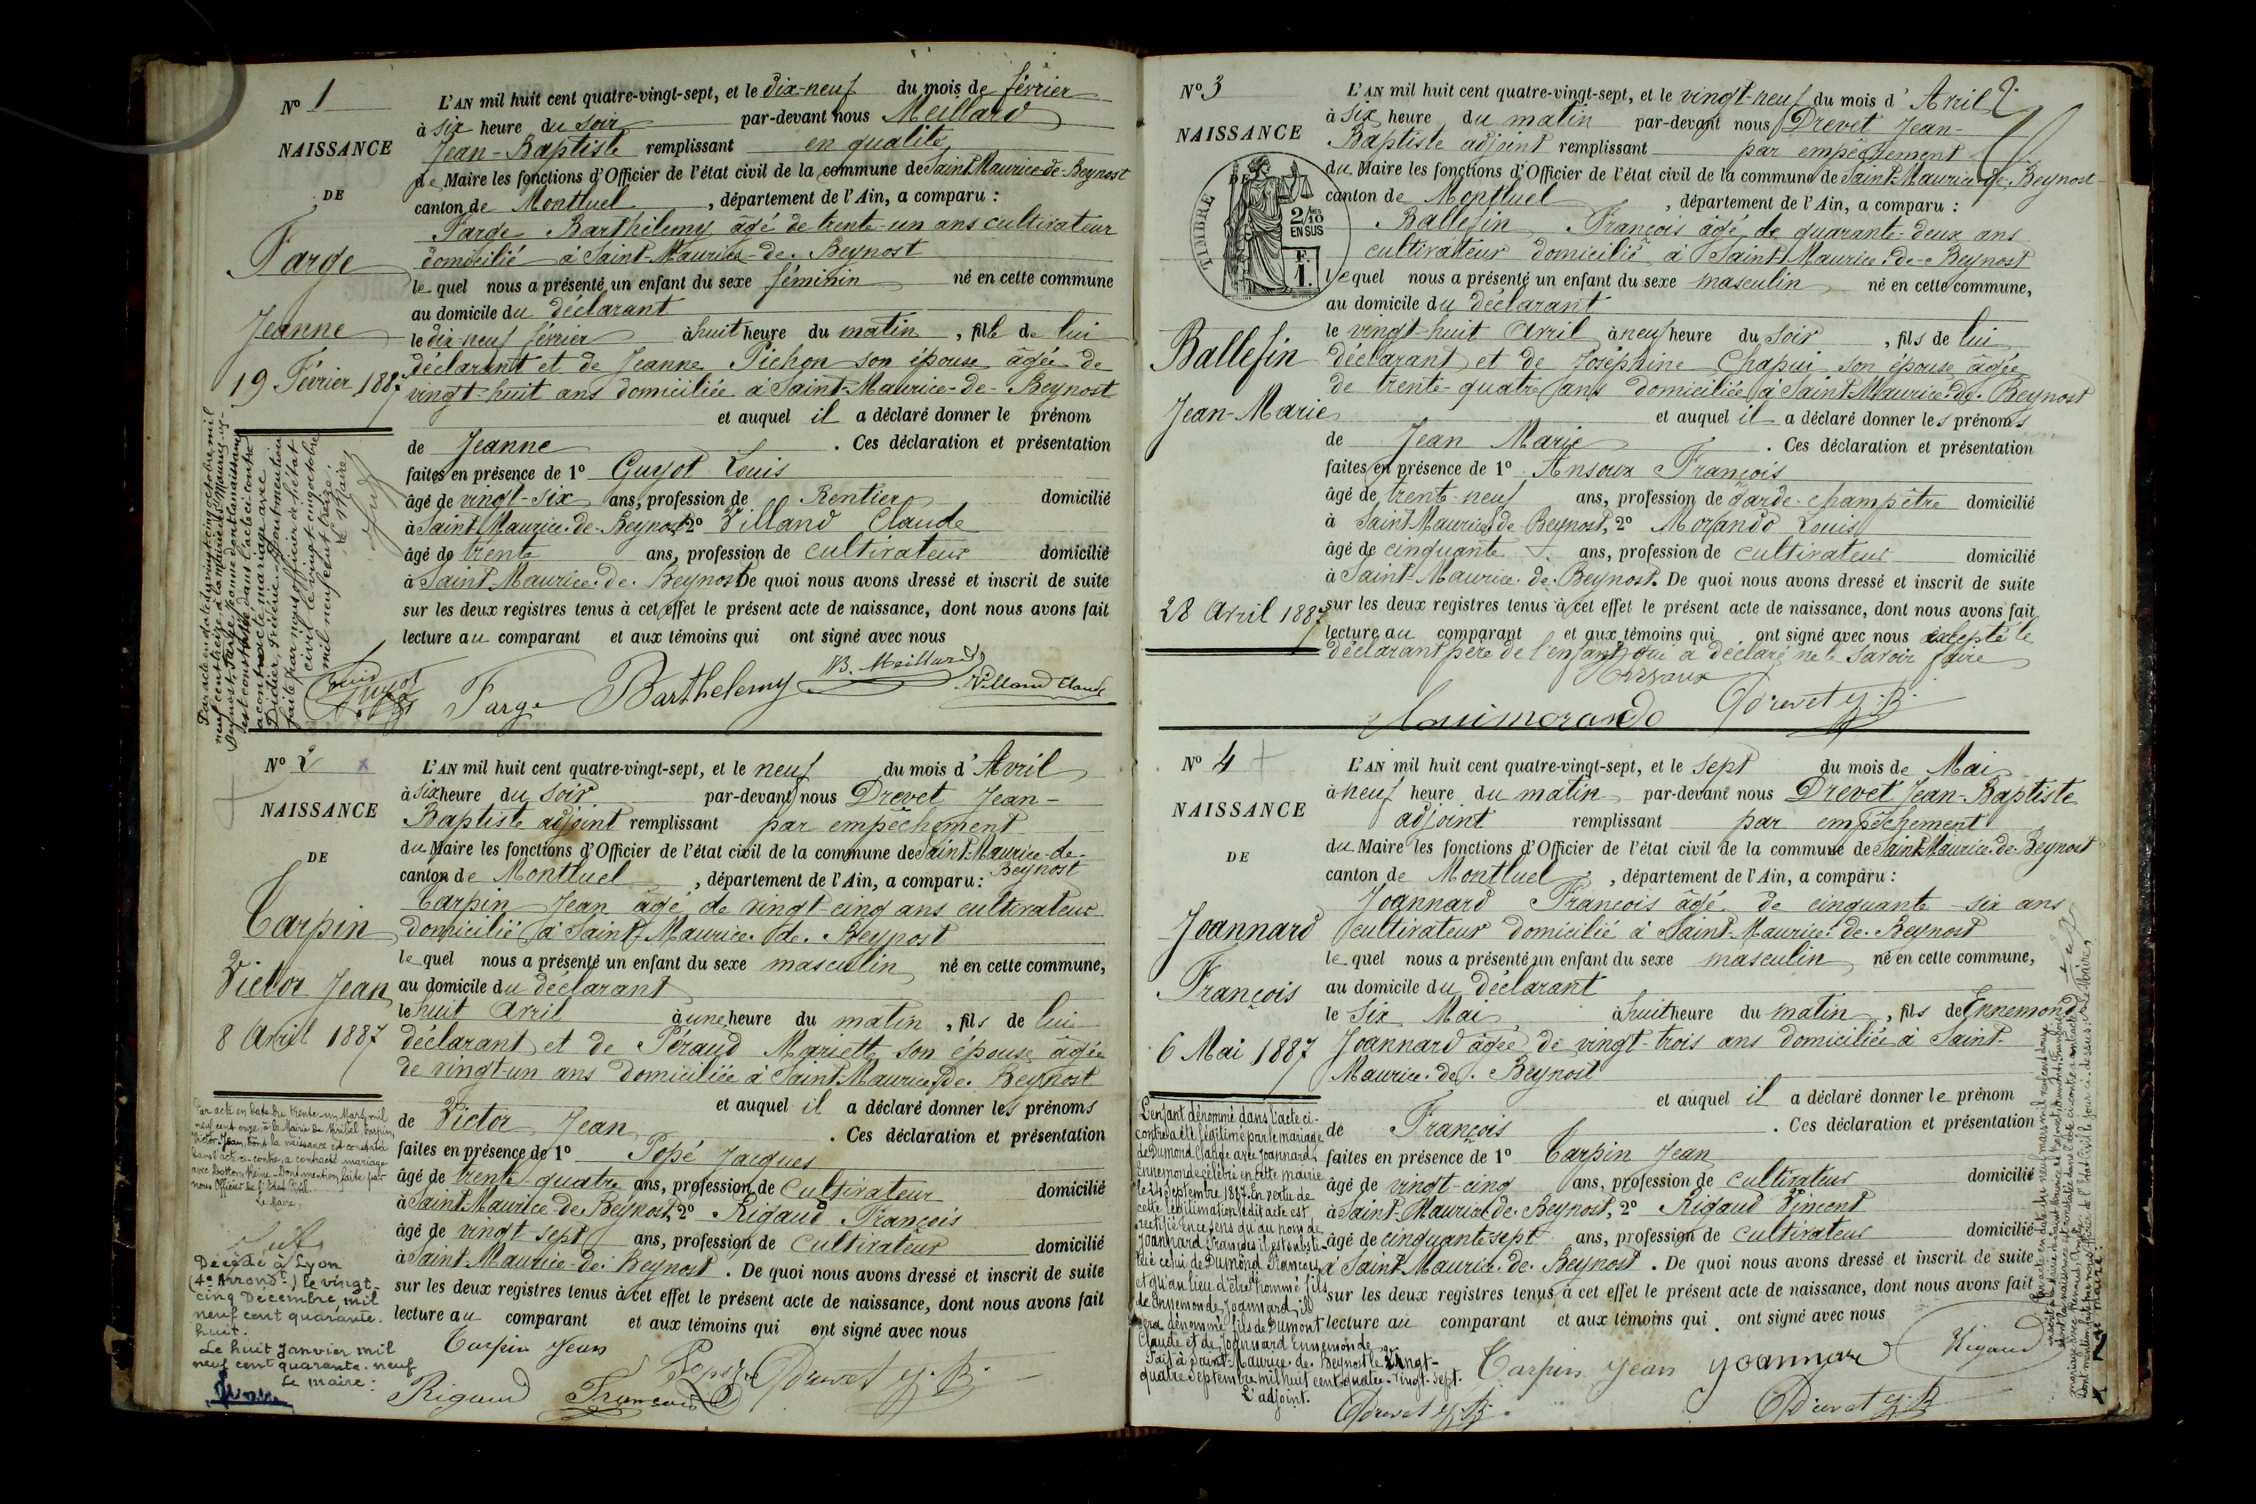 N° 1
NAISSANCE
DE
Farge
Jeanne
19 Février 1887
L'AN mil huit cent quatre-vingt-sept, et le dix-neuf du mois de février
à six heure du soir par-devant nous Meillard
Jean-Baptiste remplissant en qualité
de Maire les fonctions d'Officier de l'état civil de la commune de Saint Maurice-de-Beynost
canton de Montluel, département de l'Ain, a comparu :
Farge Barthélemy âgé de trente-un ans cultivateur
domicilié à Saint-Maurice-de-Beynost
lequel nous a présenté un enfant du sexe féminin né en cette commune
au domicile du déclarant
le dix-neuf février à huit heure du matin, fille de lui
déclarant et de Jeanne Pichon son épouse âgée de
vingt-huit ans domiciliée à Saint-Maurice-de-Beynost
et auquel il a déclaré donner le prénom
de Jeanne. Ces déclaration et présentation
faites en présence de 1° Guyot Louis
âgé de vingt-six ans, profession de Rentier domicilié
à Saint Maurice-de-Beynost, 2° Villand Claude
âgé de trente ans, profession de cultivateur domicilié
à Saint-Maurice-de-Beynost De quoi nous avons dressé et inscrit de suite
sur les deux registres tenus à cet effet le présent acte de naissance, dont nous avons fait
lecture au comparant et aux témoins qui ont signé avec nous
Guyot Farge Barthelemy B. Meillard Villand Claude
Par acte en date du vingt cinq octobre mil
neuf cent treize à la mairie de St Maurice-de-
Beynost, Farge Jeanne dont la naissance
est constatée dans l'acte ci-contre
a contracté mariage avec
Didier, Frédéric. Dont mention
faite par nous officier de l'état
civil le vingt-cinq octobre
mil neuf cent treize.
Le Maire,
N° 2
NAISSANCE
DE
Carpin
Victor Jean
8 Avril 1887
L'AN mil huit cent quatre-vingt-sept, et le neuf du mois d'Avril
à six heure du soir par-devant nous Drevet Jean-
Baptiste adjoint remplissant par empêchement
du Maire les fonctions d'Officier de l'état civil de la commune de Saint-Maurice-de-
Beynost
canton de Montluel, département de l'Ain, a comparu :
Carpin Jean âgé de vingt-cinq ans cultivateur
domicilié à Saint-Maurice-de-Beynost
lequel nous a présenté un enfant du sexe masculin né en cette commune,
au domicile du déclarant
le huit Avril à une heure du matin, fils de lui
déclarant et de Péraud Mariette son épouse âgée
de vingt-un ans domiciliée à Saint-Maurice-de-Beynost
et auquel il a déclaré donner les prénoms
de Victor Jean. Ces déclaration et présentation
faites en présence de 1° Popé Jacques
âgé de trente-quatre ans, profession de cultivateur domicilié
à Saint Maurice-de-Beynost, 2° Rigaud François
âgé de vingt-sept ans, profession de cultivateur domicilié
à Saint-Maurice-de-Beynost. De quoi nous avons dressé et inscrit de suite
sur les deux registres tenus à cet effet le présent acte de naissance, dont nous avons fait
lecture au comparant et aux témoins qui ont signé avec nous
Carpin Jean
Rigaud François Drevet J. B.
Par acte en date du trente-un Mars mil
neuf cent onze, à la Mairie de Miribel, Carpin
Victor-Jean, dont la naissance est constatée
dans l'acte ci-contre, a contracté mariage
Dont mention faite par
nous Officier de l'Etat Civil.
Le Maire,
Décédé à Lyon
(4e Arrondt.) le vingt-
cinq Décembre, mil
neuf cent quarante-
huit.
Le huit Janvier mil
neuf cent quarante-neuf
Le maire :
N° 3
NAISSANCE
DE
TIMBRE
2/10
EN SUS
F.
1.
Ballefin
Jean-Marie
28 Avril 1887
L'AN mil huit cent quatre-vingt-sept, et le vingt-neuf du mois d'Avril
2
à six heure du matin par-devant nous Drevet Jean-
Baptiste adjoint remplissant par empêchement
du Maire les fonctions d'Officier de l'état civil de la commune de Saint-Maurice-de-Beynost
canton de Montluel, département de l'Ain, a comparu :
Ballefin François âgé de quarante-deux ans
cultivateur domicilié à Saint-Maurice-de-Beynost
lequel nous a présenté un enfant du sexe masculin né en cette commune,
au domicile du déclarant
le vingt-huit Avril à neuf heure du soir, fils de lui
déclarant et de Joséphine Chapui son épouse âgée
de trente-quatre ans domiciliée à Saint-Maurice-de-Beynost
et auquel il a déclaré donner les prénoms
de Jean Marie. Ces déclaration et présentation
faites en présence de 1° Ansoux François
âgé de trente-neuf ans, profession de Garde-champêtre domicilié
à Saint Maurice de Beynost, 2° Morando Louis
âgé de cinquante ans, profession de cultivateur domicilié
à Saint-Maurice-de-Beynost. De quoi nous avons dressé et inscrit de suite
sur les deux registres tenus à cet effet le présent acte de naissance, dont nous avons fait
lecture au comparant et aux témoins qui ont signé avec nous excepté le
déclarant père de l'enfant qui a déclaré ne le savoir faire
Louis morando Drevet J. B.
N° 4
NAISSANCE
DE
Joannard
François
6 Mai 1887
L'AN mil huit cent quatre-vingt-sept, et le sept du mois de Mai
à neuf heure du matin par-devant nous Drevet Jean-Baptiste
adjoint remplissant par empêchement
du Maire les fonctions d'Officier de l'état civil de la commune de Saint-Maurice-de-Beynost
canton de Montluel, département de l'Ain, a comparu :
Joannard François âgé de cinquante-six ans
cultivateur domicilié à Saint-Maurice-de-Beynost
lequel nous a présenté un enfant du sexe masculin né en cette commune,
au domicile du déclarant
le six Mai à huit heure du matin, fils de Ennemonde
Joannard âgée de vingt-trois ans domiciliée à Saint-
Maurice-de-Beynost
et auquel il a déclaré donner le prénom
de François. Ces déclaration et présentation
faites en présence de 1° Carpin Jean
âgé de vingt-cinq ans, profession de cultivateur domicilié
à Saint-Maurice-de-Beynost, 2° Rigaud Vincent
âgé de cinquante sept ans, profession de cultivateur domicilié
à Saint Maurice-de-Beynost. De quoi nous avons dressé et inscrit de suite
sur les deux registres tenus à cet effet le présent acte de naissance, dont nous avons fait
lecture au comparant et aux témoins qui ont signé avec nous
Carpin Jean Joannard Rigaud
Drevet J. B. Drevet J. B
L'enfant dénommé dans l'acte ci-
contre a été légitimé par le mariage
de Dumond Claude avec Joannard
Ennemonde célébré en cette mairie
le 24 Septembre 1887. En vertu de
cette légitimation ledit acte est
rectifié en ce sens qu'au nom de
Joannard François il est substi-
tué celui de Dumond François
et qu'au lieu d'être nommé fils
de Ennemonde Joannard, il
sera dénommé fils de Dumont
Claude et de Joannard Ennemonde
Fait à Saint-Maurice-de-Beynost le vingt-
quatre Septembre mil huit cent quatre-vingt-sept.
L'adjoint.